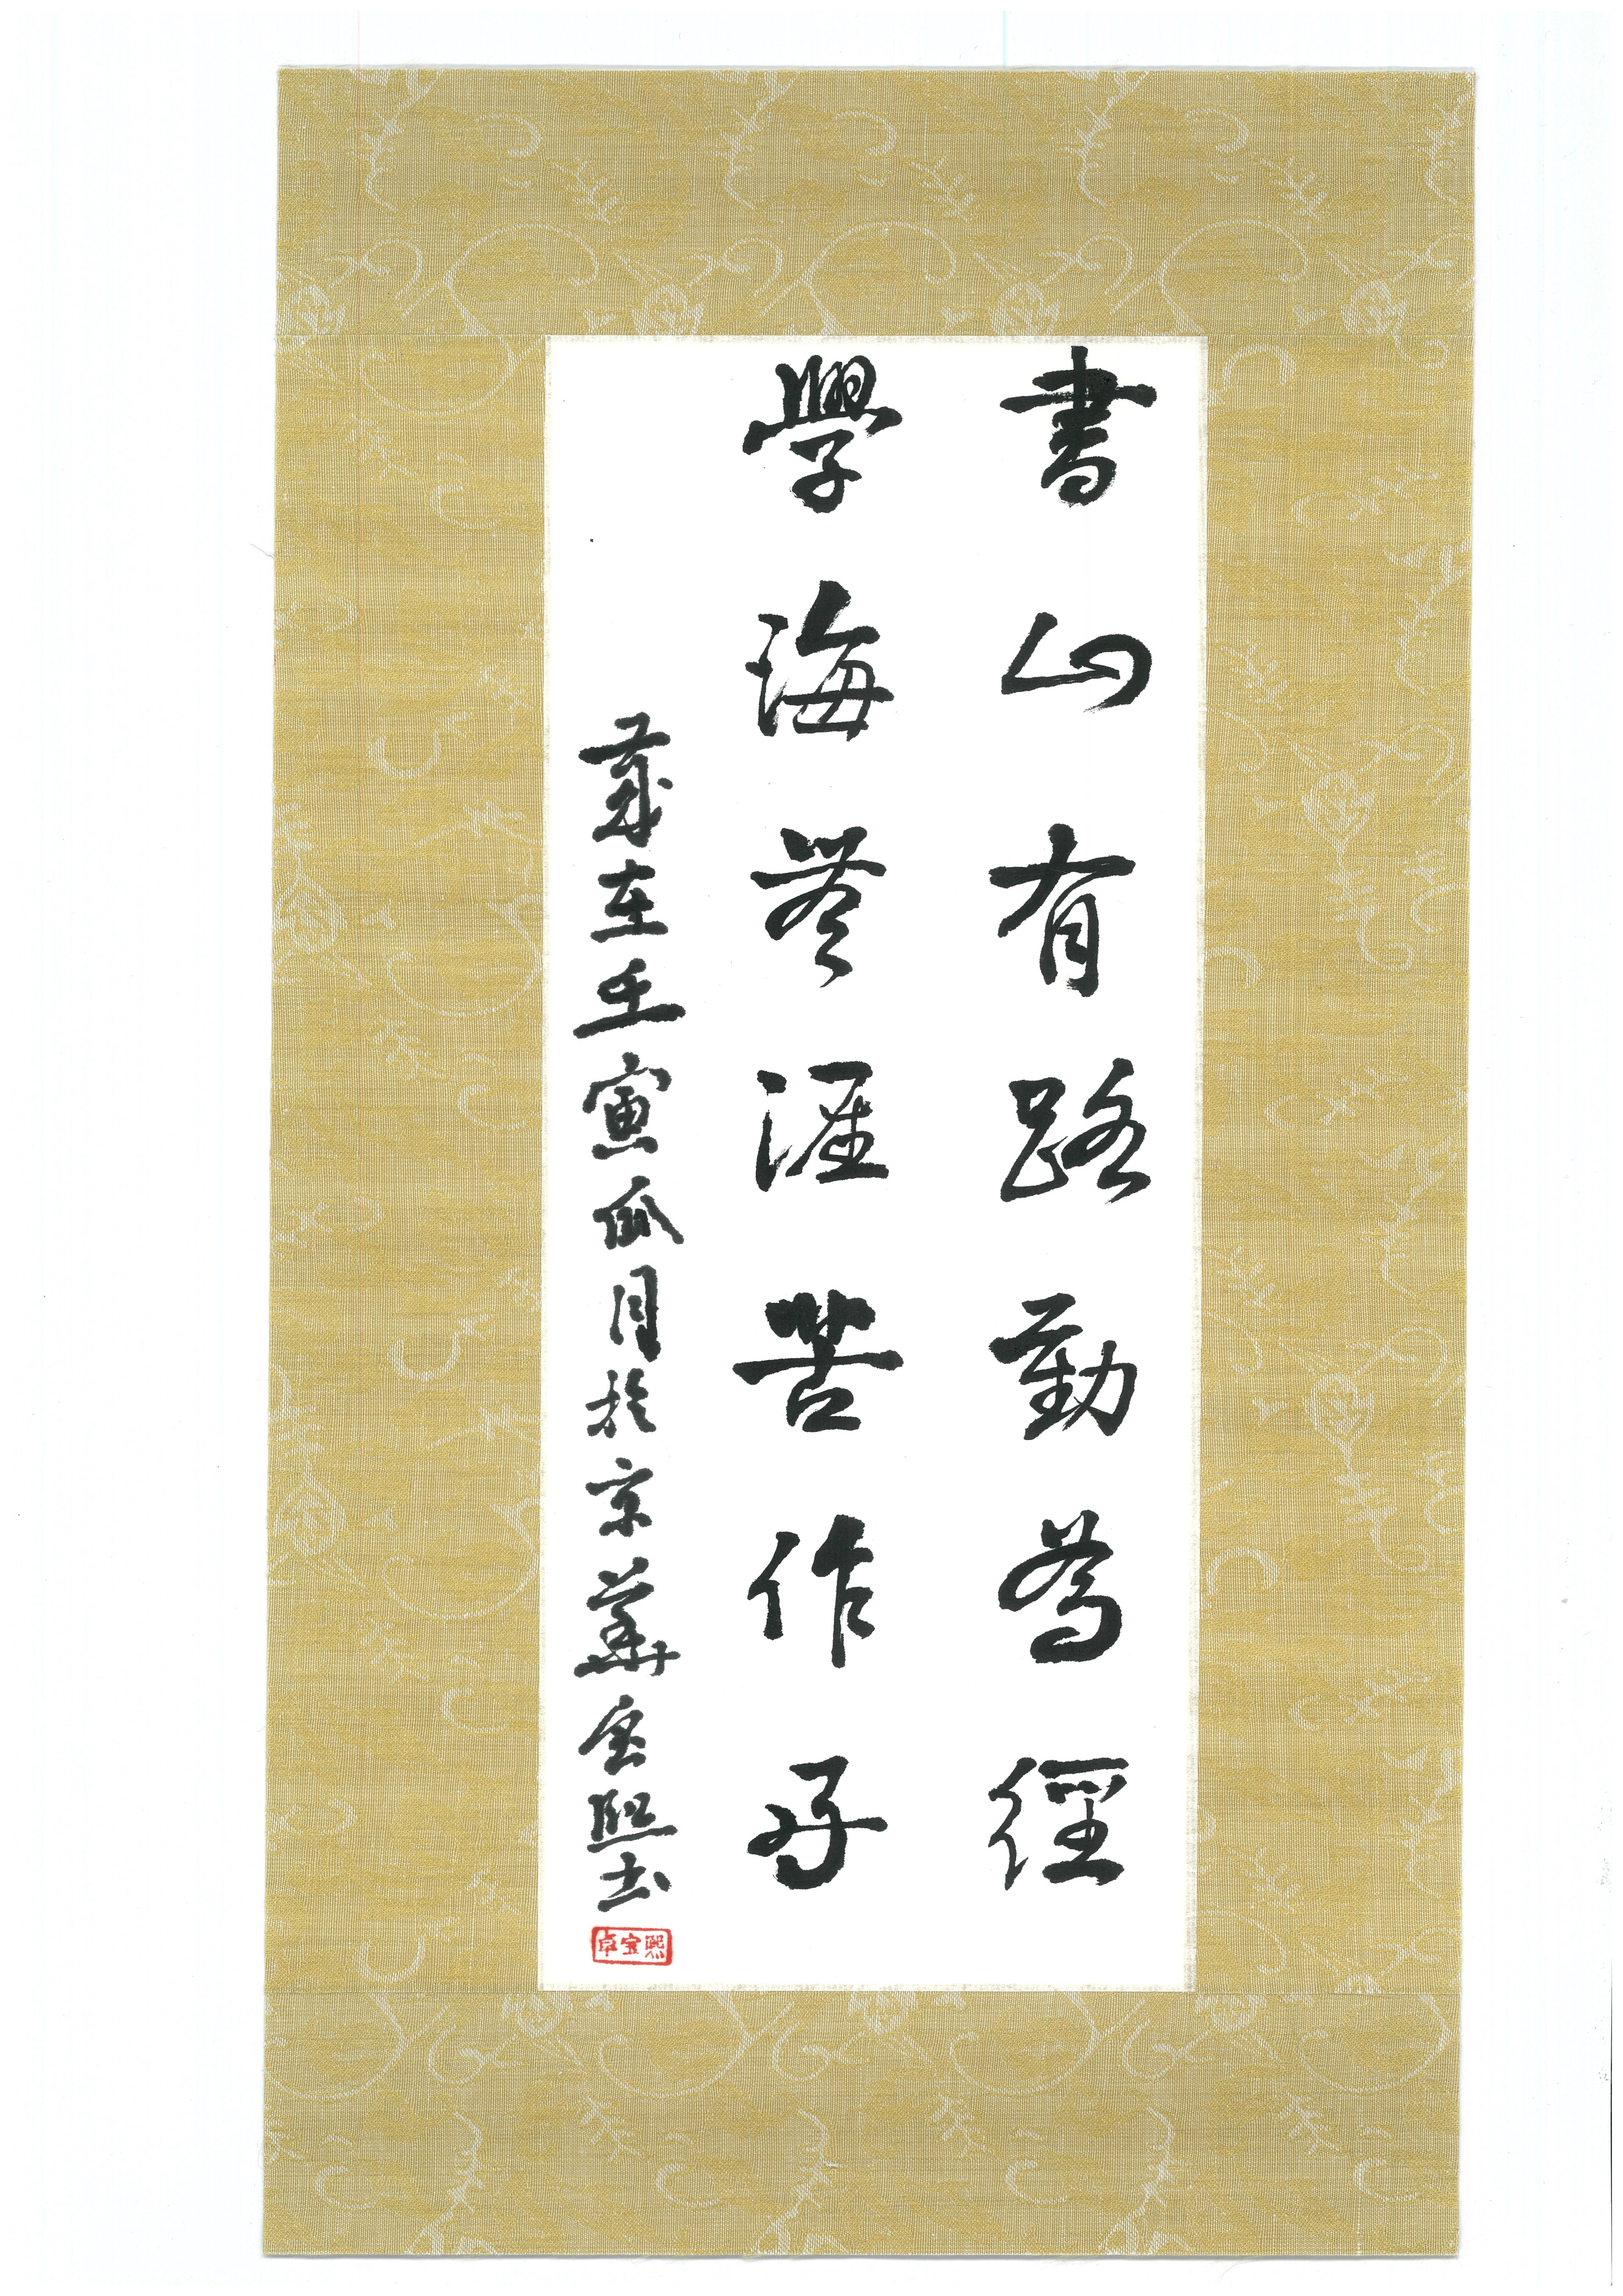 書山有路勤為徑
學海無涯苦作舟
歲在壬寅瓜月於京華宝熙书
卓宝熙